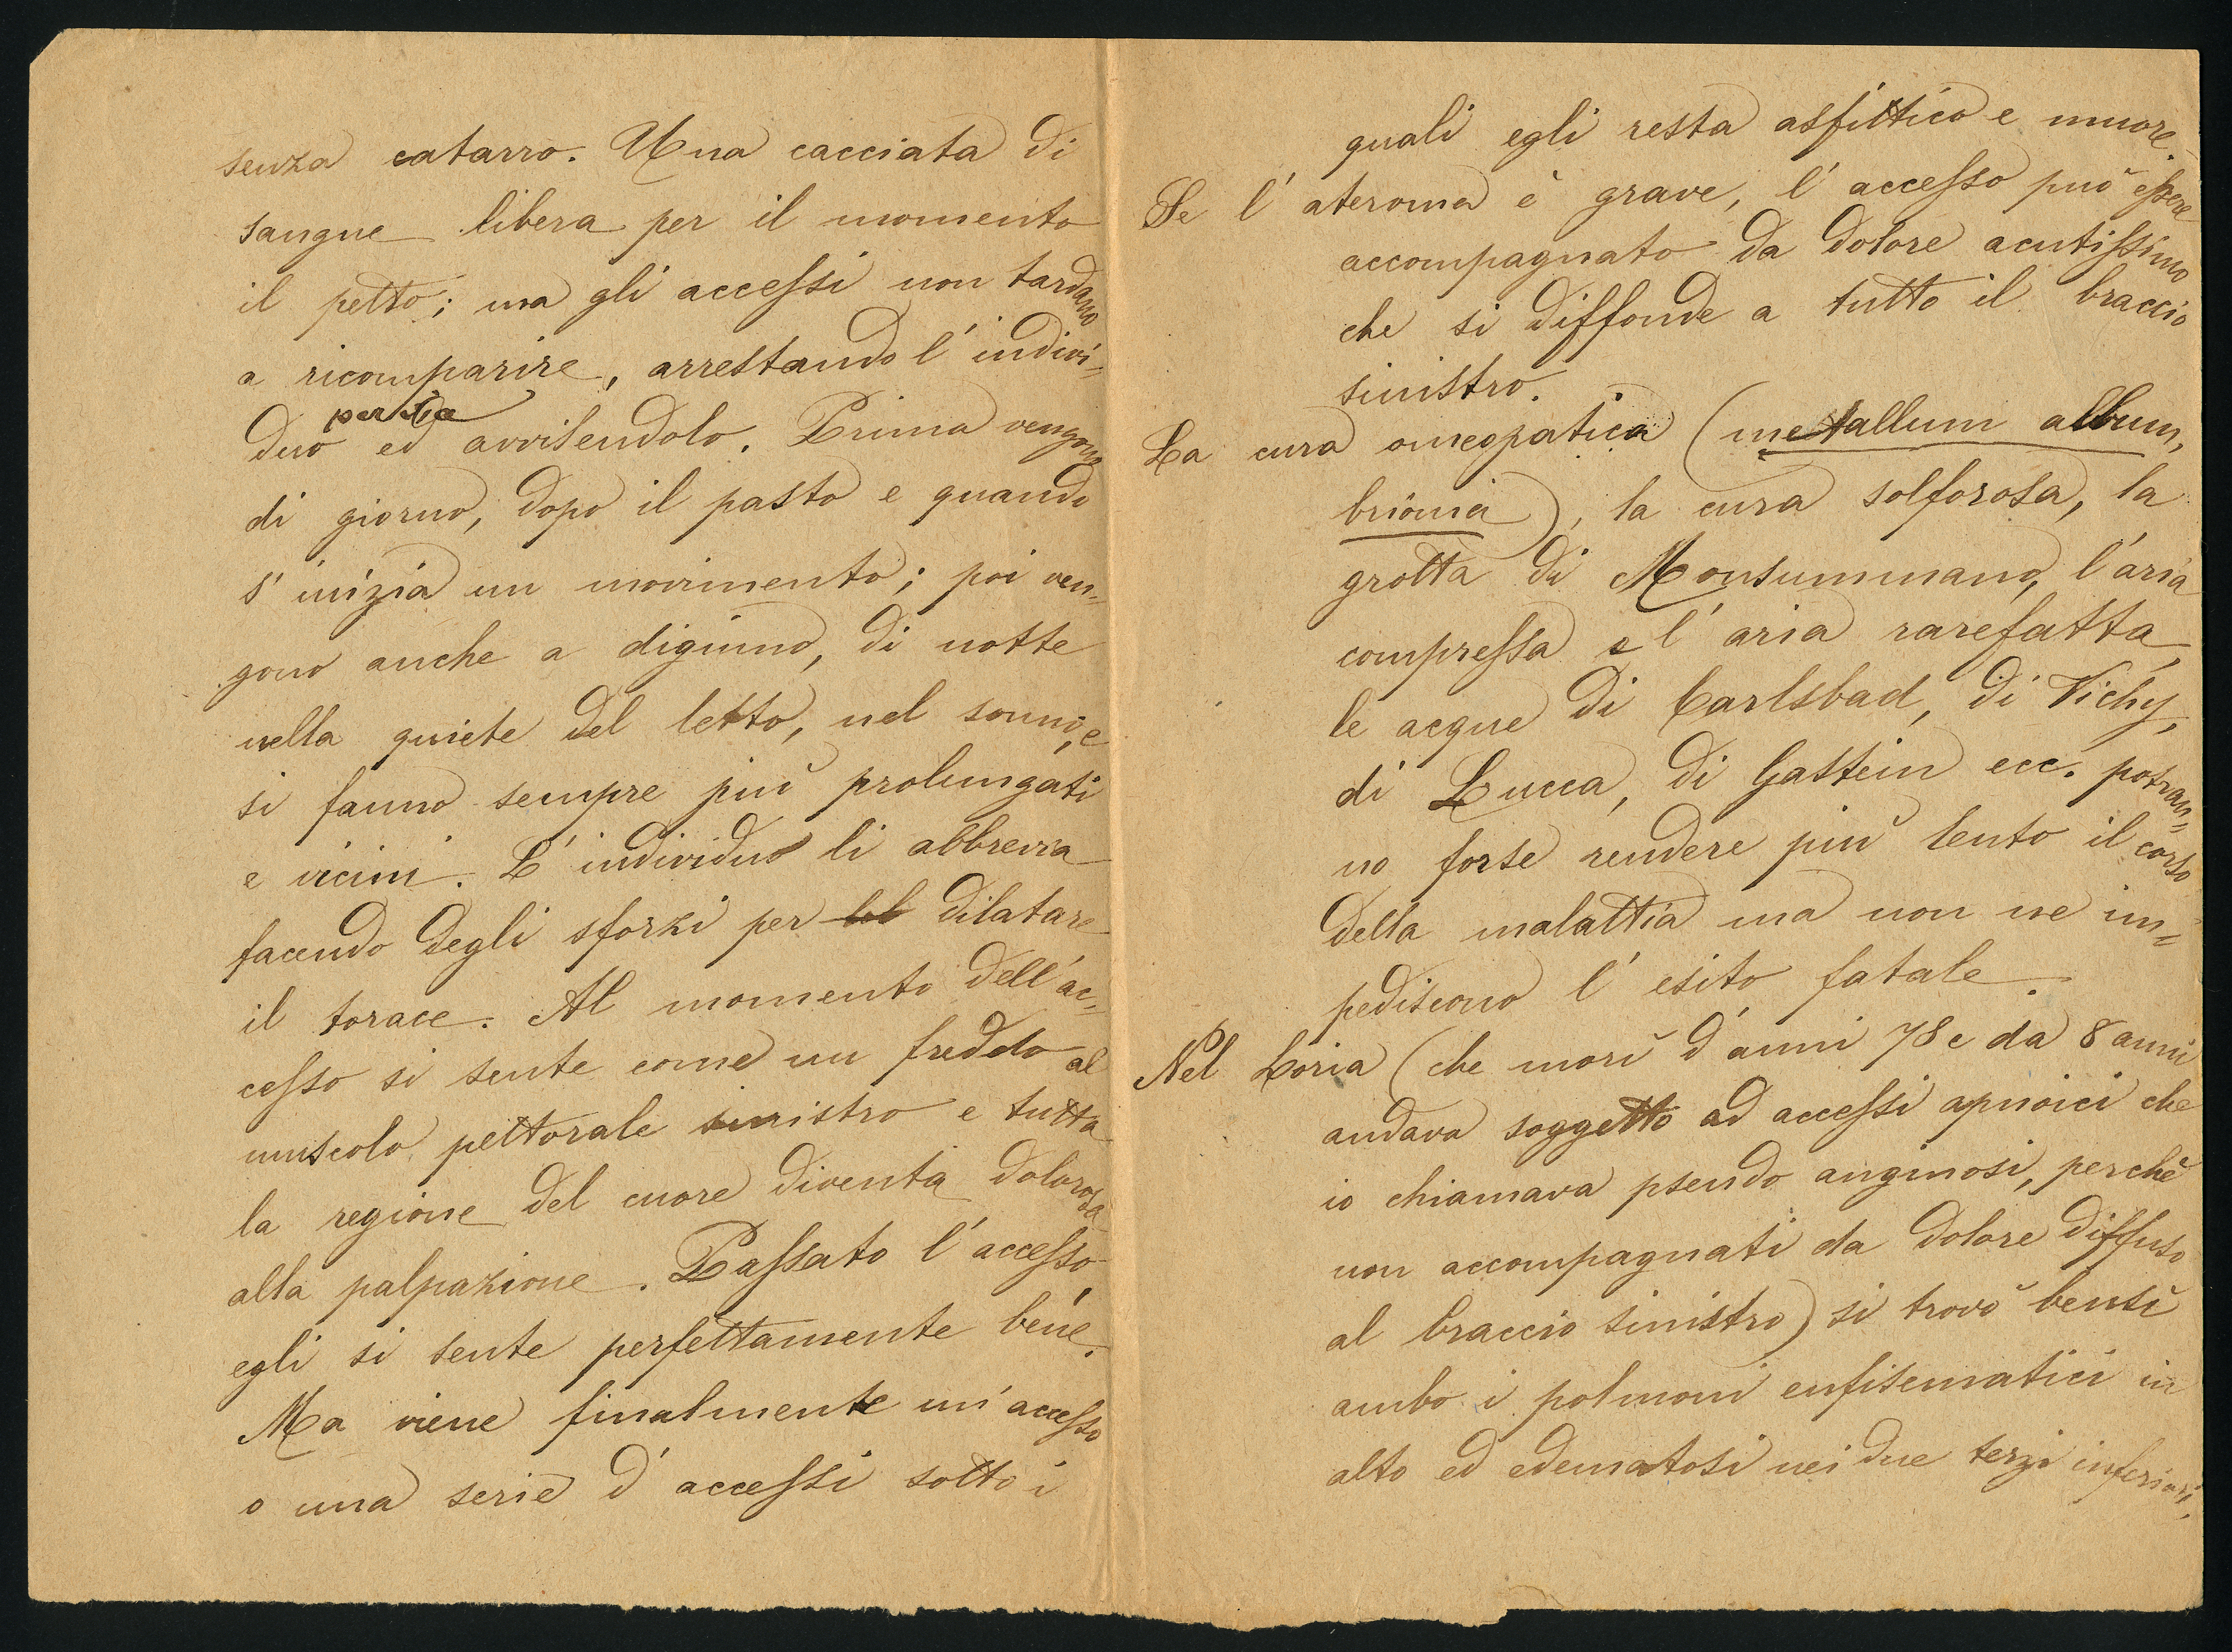 senza catarro. Una cacciata di
sangue libera per il momento
il petto; ma gli accessi non tardano
a ricomparire, arrestando l'indivi=
per via
duo ed avvilendolo. Prima vengono
di giorno, dopo il pasto e quando
s'inizia un movimento; poi ven=
gono anche a digiuno, di notte
nella quiete del letto, nel sonno, e
si fanno sempre più prolungati
e vicini. L'individuo li abbrevia
facendo degli sforzi per dilatare
il torace. Al momento dell'ac=
cesso si sente come un freddo al
muscolo pettorale sinistro e tutta
la regione del cuore diventa dolorosa
alla palpazione. Passato l'accesso,
egli si sente perfettamente bene.
Ma viene finalmente un'accesso
o una serie d'accessi sotto i
quali egli resta asfittico e muore.
Se l'ateroma è grave, l'accesso può essere
accompagnato da dolore acutissimo
che si diffonde a tutto il braccio
sinistro.
La cura omeopatica (metallum album,
brionia), la cura solforosa, la
grotta di Monsummano, l'aria
compressa e l'aria rarefatta,
le acque di Carlsbad, di Vichy,
di Lucca, di Gastein ecc. potran=
no forse rendere più lento il corso
della malattia ma non ne im=
pediscono l'esito fatale.
Nel Loria (che morì d'anni 78 e da 8 anni
andava soggetto ad accessi apnoici che
io chiamava pseudo anginosi, perchè
non accompagnati da dolore diffuso
al braccio sinistro) si trovò bensì
ambo i polmoni enfisematici in
alto ed edematosi nei due terzi inferiori,